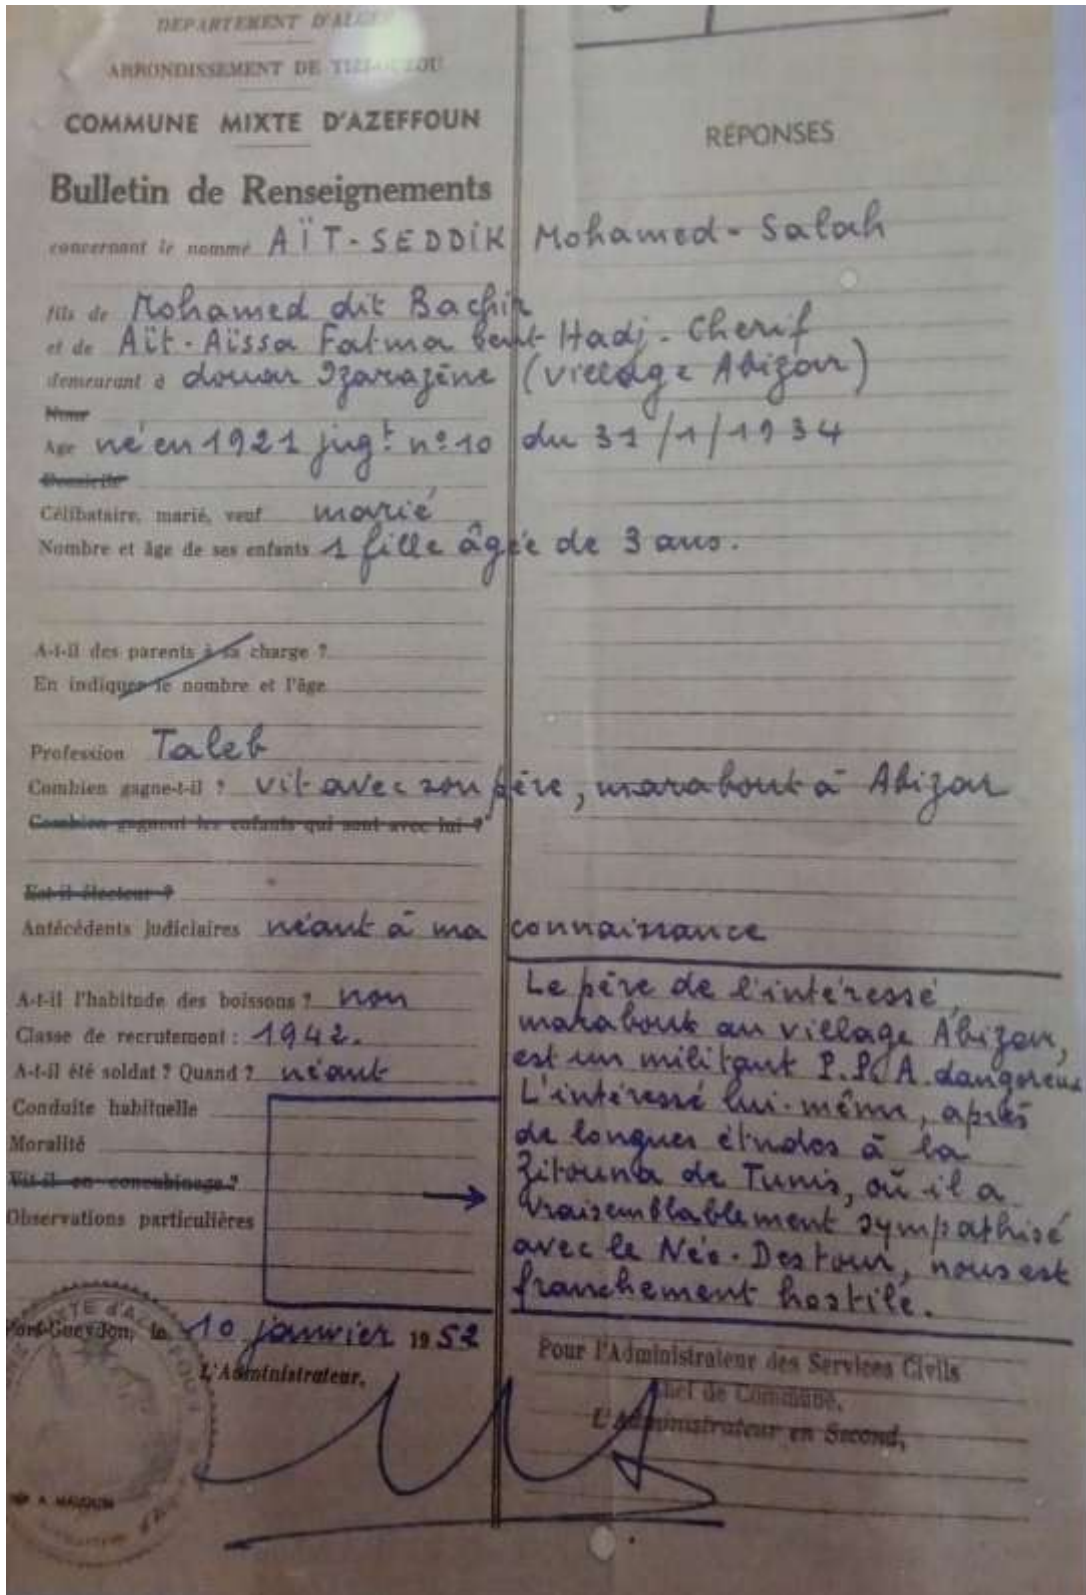 DÉPARTEMENT D'ALGER
ARRONDISSEMENT DE TIZI-OUZOU
COMMUNE MIXTE D'AZEFFOUN
RÉPONSES
Bulletin de Renseignements
concernant le nommé AÏT-SEDDIK Mohamed-Salah
fils de Mohamed dit Bachir
et de Aït-Aïssa Fatma bent Hadj-Cherif
demeurant à douar Izarazène (village Abizar)
Age né en 1921 jugt n° 10 du 31/1/1934
Domicile
Célibataire, marié, veuf marié
Nombre et âge de ses enfants 1 fille âgée de 3 ans.
A-t-il des parents à sa charge ?
En indiquer le nombre et l'âge
Profession Taleb
Combien gagne-t-il ? vit avec son père, marabout à Abizar
Combien gagnent les enfants qui sont avec lui ?
Est-il électeur ?
Antécédents judiciaires néant à ma connaissance
A-t-il l'habitude des boissons ? non
Classe de recrutement : 1942.
A-t-il été soldat ? Quand ? néant
Conduite habituelle
Moralité
Vit-il en concubinage ?
Observations particulières
Le père de l'intéressé,
marabout au village Abizar,
est un militant P.P.A. dangereux
L'intéressé lui-même, après
de longues études à la
Zitouna de Tunis, où il a
vraisemblablement sympathisé
avec le Néo-Destour, nous est
franchement hostile.
Port-Gueydon, le 10 janvier 1952
L'Administrateur,
Pour l'Administrateur des Services Civils
Chef de Commune,
L'Administrateur en Second,